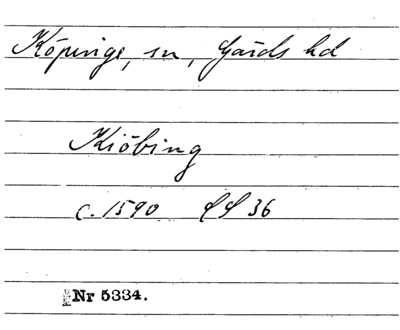 Köpinge, sn, Gärds hd
Kiöbing
c. 1590 LL 36
Nr 5334.